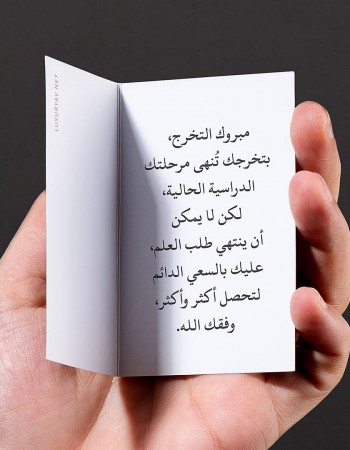 مبروك التخرج،
بتخرجك تُنهى مرحلتك
الدراسية الحالية،
لكن لا يمكن
أن ينتهي طلب العلم،
عليك بالسعي الدائم
لتحصل أكثر وأكثر،
وفقك الله.